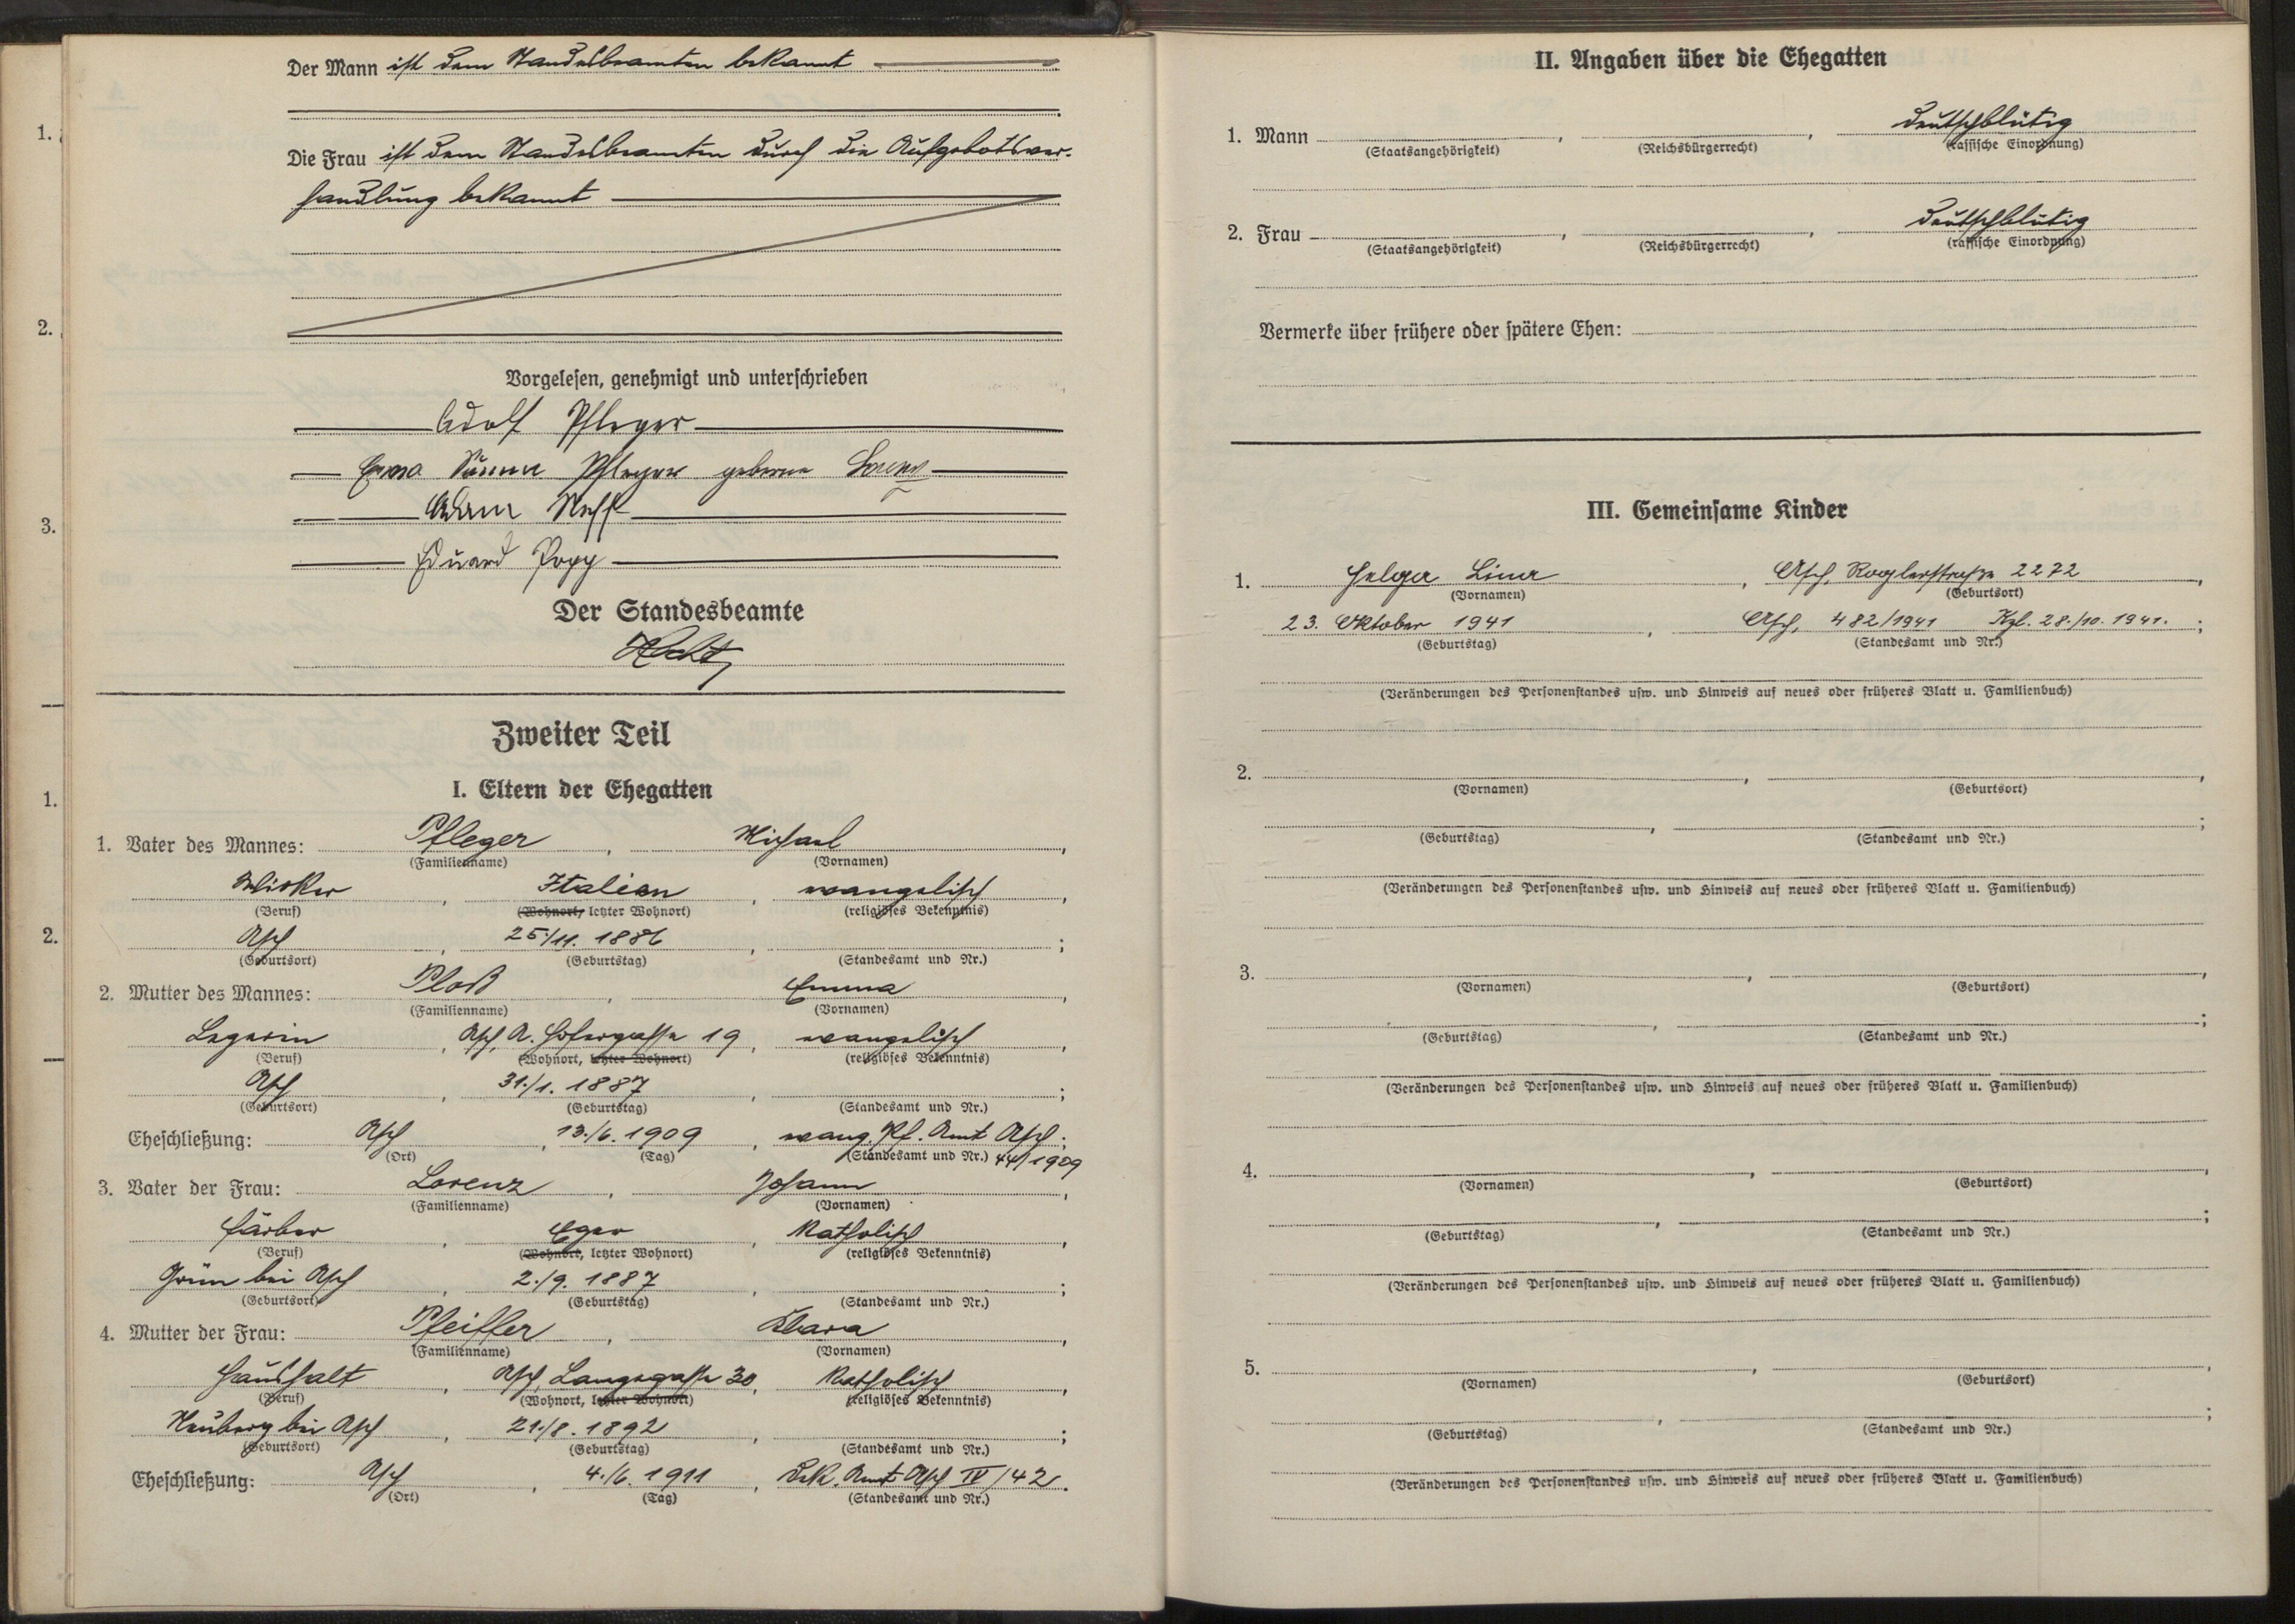 Der Mann ist dem Standesbeamten bekannt
1.
Die Frau ist dem Standesbeamten durch die Aufgebotsver-
handlung bekannt
2.
Vorgelesen, genehmigt und unterschrieben
Adolf Pfleger
Pfleger geborene Lorenz
3.
Adam
Eduard Popp
Der Standesbeamte
Zweiter Teil
I. Eltern der Ehegatten
1.
1. Vater des Mannes: Pfleger, Michael,
(Familienname) (Vornamen)
Wirker, Italien, evangelisch,
(Beruf) (Wohnort, letzter Wohnort) (religiöses Bekenntnis)
2.
Asch, 25./11. 1886, ;
(Geburtsort) (Geburtstag) (Standesamt und Nr.)
2. Mutter des Mannes: Ploß, Emma,
(Familienname) (Vornamen)
Legerin, Asch, A. Hofergasse 19, evangelisch,
(Beruf) (Wohnort, letzter Wohnort) (religiöses Bekenntnis)
Asch, 31./1. 1887, ;
(Geburtsort) (Geburtstag) (Standesamt und Nr.)
Eheschließung: Asch, 13./6. 1909, evang. Pf. Amt Asch;
(Ort) (Tag) (Standesamt und Nr.) 44/1909
3. Vater der Frau: Lorenz, Johann,
(Familienname) (Vornamen)
Färber, Eger, katholisch,
(Beruf) (Wohnort, letzter Wohnort) (religiöses Bekenntnis)
Grün bei Asch, 2./9. 1887, ;
(Geburtsort) (Geburtstag) (Standesamt und Nr.)
4. Mutter der Frau: Pfeiffer, Klara,
(Familienname) (Vornamen)
Haushalt, Asch, Langegasse 30, katholisch,
(Beruf) (Wohnort, letzter Wohnort) (religiöses Bekenntnis)
Neuberg bei Asch, 21./8. 1892, ;
(Geburtsort) (Geburtstag) (Standesamt und Nr.)
Eheschließung: Asch, 4./6. 1911, Dek. Amt Asch IV/42.
(Ort) (Tag) (Standesamt und Nr.)
II. Angaben über die Ehegatten
1. Mann , , deutschblütig
(Staatsangehörigkeit) (Reichsbürgerrecht) (rassische Einordnung)
2. Frau , , deutschblütig
(Staatsangehörigkeit) (Reichsbürgerrecht) (rassische Einordnung)
Vermerke über frühere oder spätere Ehen:
III. Gemeinsame Kinder
1. Helga Lina, Asch, Roglerstraße 2272,
(Vornamen) (Geburtsort)
23. Oktober 1941, Asch, 482/1941 Kzl. 28./10. 1941. ;
(Geburtstag) (Standesamt und Nr.)
(Veränderungen des Personenstandes usw. und Hinweis auf neues oder früheres Blatt u. Familienbuch)
2. , ,
(Vornamen) (Geburtsort)
, ;
(Geburtstag) (Standesamt und Nr.)
(Veränderungen des Personenstandes usw. und Hinweis auf neues oder früheres Blatt u. Familienbuch)
3. , ,
(Vornamen) (Geburtsort)
, ;
(Geburtstag) (Standesamt und Nr.)
(Veränderungen des Personenstandes usw. und Hinweis auf neues oder früheres Blatt u. Familienbuch)
4. , ,
(Vornamen) (Geburtsort)
, ;
(Geburtstag) (Standesamt und Nr.)
(Veränderungen des Personenstandes usw. und Hinweis auf neues oder früheres Blatt u. Familienbuch)
5. , ,
(Vornamen) (Geburtsort)
, ;
(Geburtstag) (Standesamt und Nr.)
(Veränderungen des Personenstandes usw. und Hinweis auf neues oder früheres Blatt u. Familienbuch)